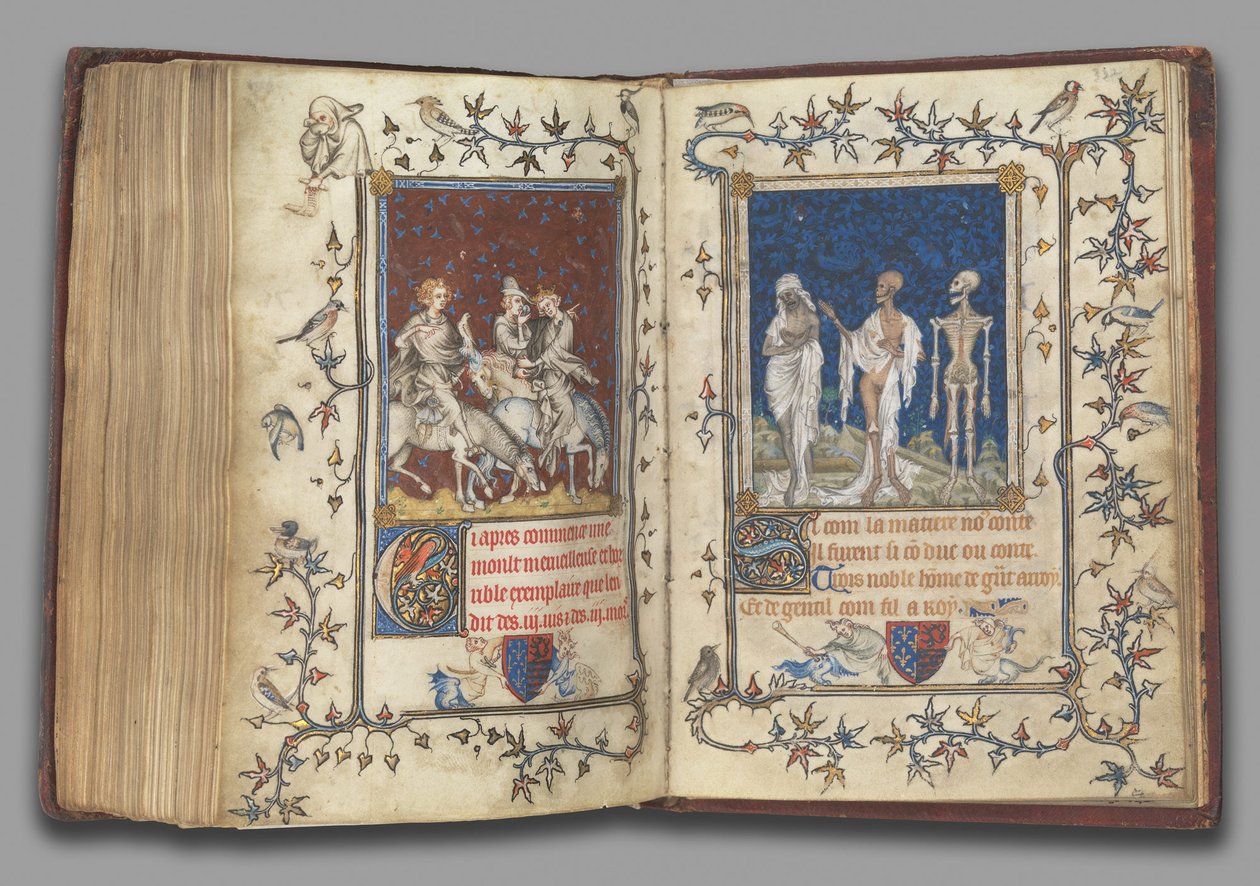 Ci apres commence une
moult merueilleuse et hor
rible exemplaire que len
dit des .iij. uis ⁊ des .iij. morˢ.
322
Si com la matiere noꝰ conte
Il furent si cō duc ou conte.
Trois noble hōme de gͣnt arroy.
Et de gentil com fil a roy.